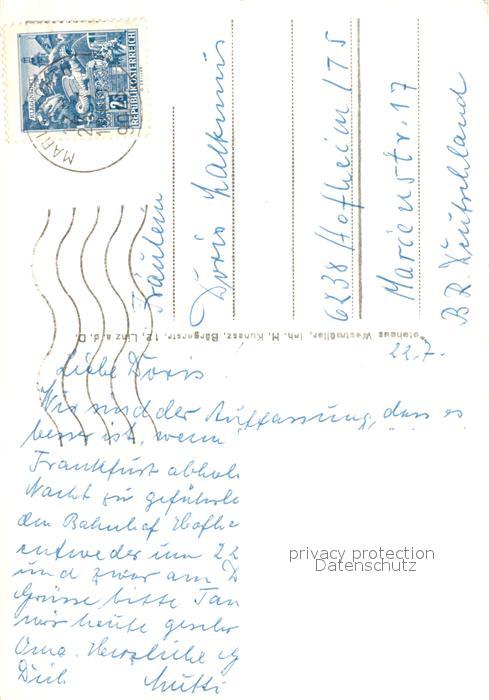 REPUBLIK ÖSTERREICH
Fräulein
Doris
6238 Hofheim / TS
Marienstr. 17
BR. Deutschland
Westmüller, Inh. M. Kunesz, Bürgerstr. 12, Linz a. d. D.
22.7.
Liebe Doris!
Wir sind der Auffassung, dass es
besser ist, wenn
Frankfurt abhole
Nacht zu gefährl
den Bahnhof Hofhe
entweder um 22
und zwar am D
Grüsse bitte Tan
mir heute geschr
Oma. Herzliche G
Dich Mutti
privacy protection
Datenschutz